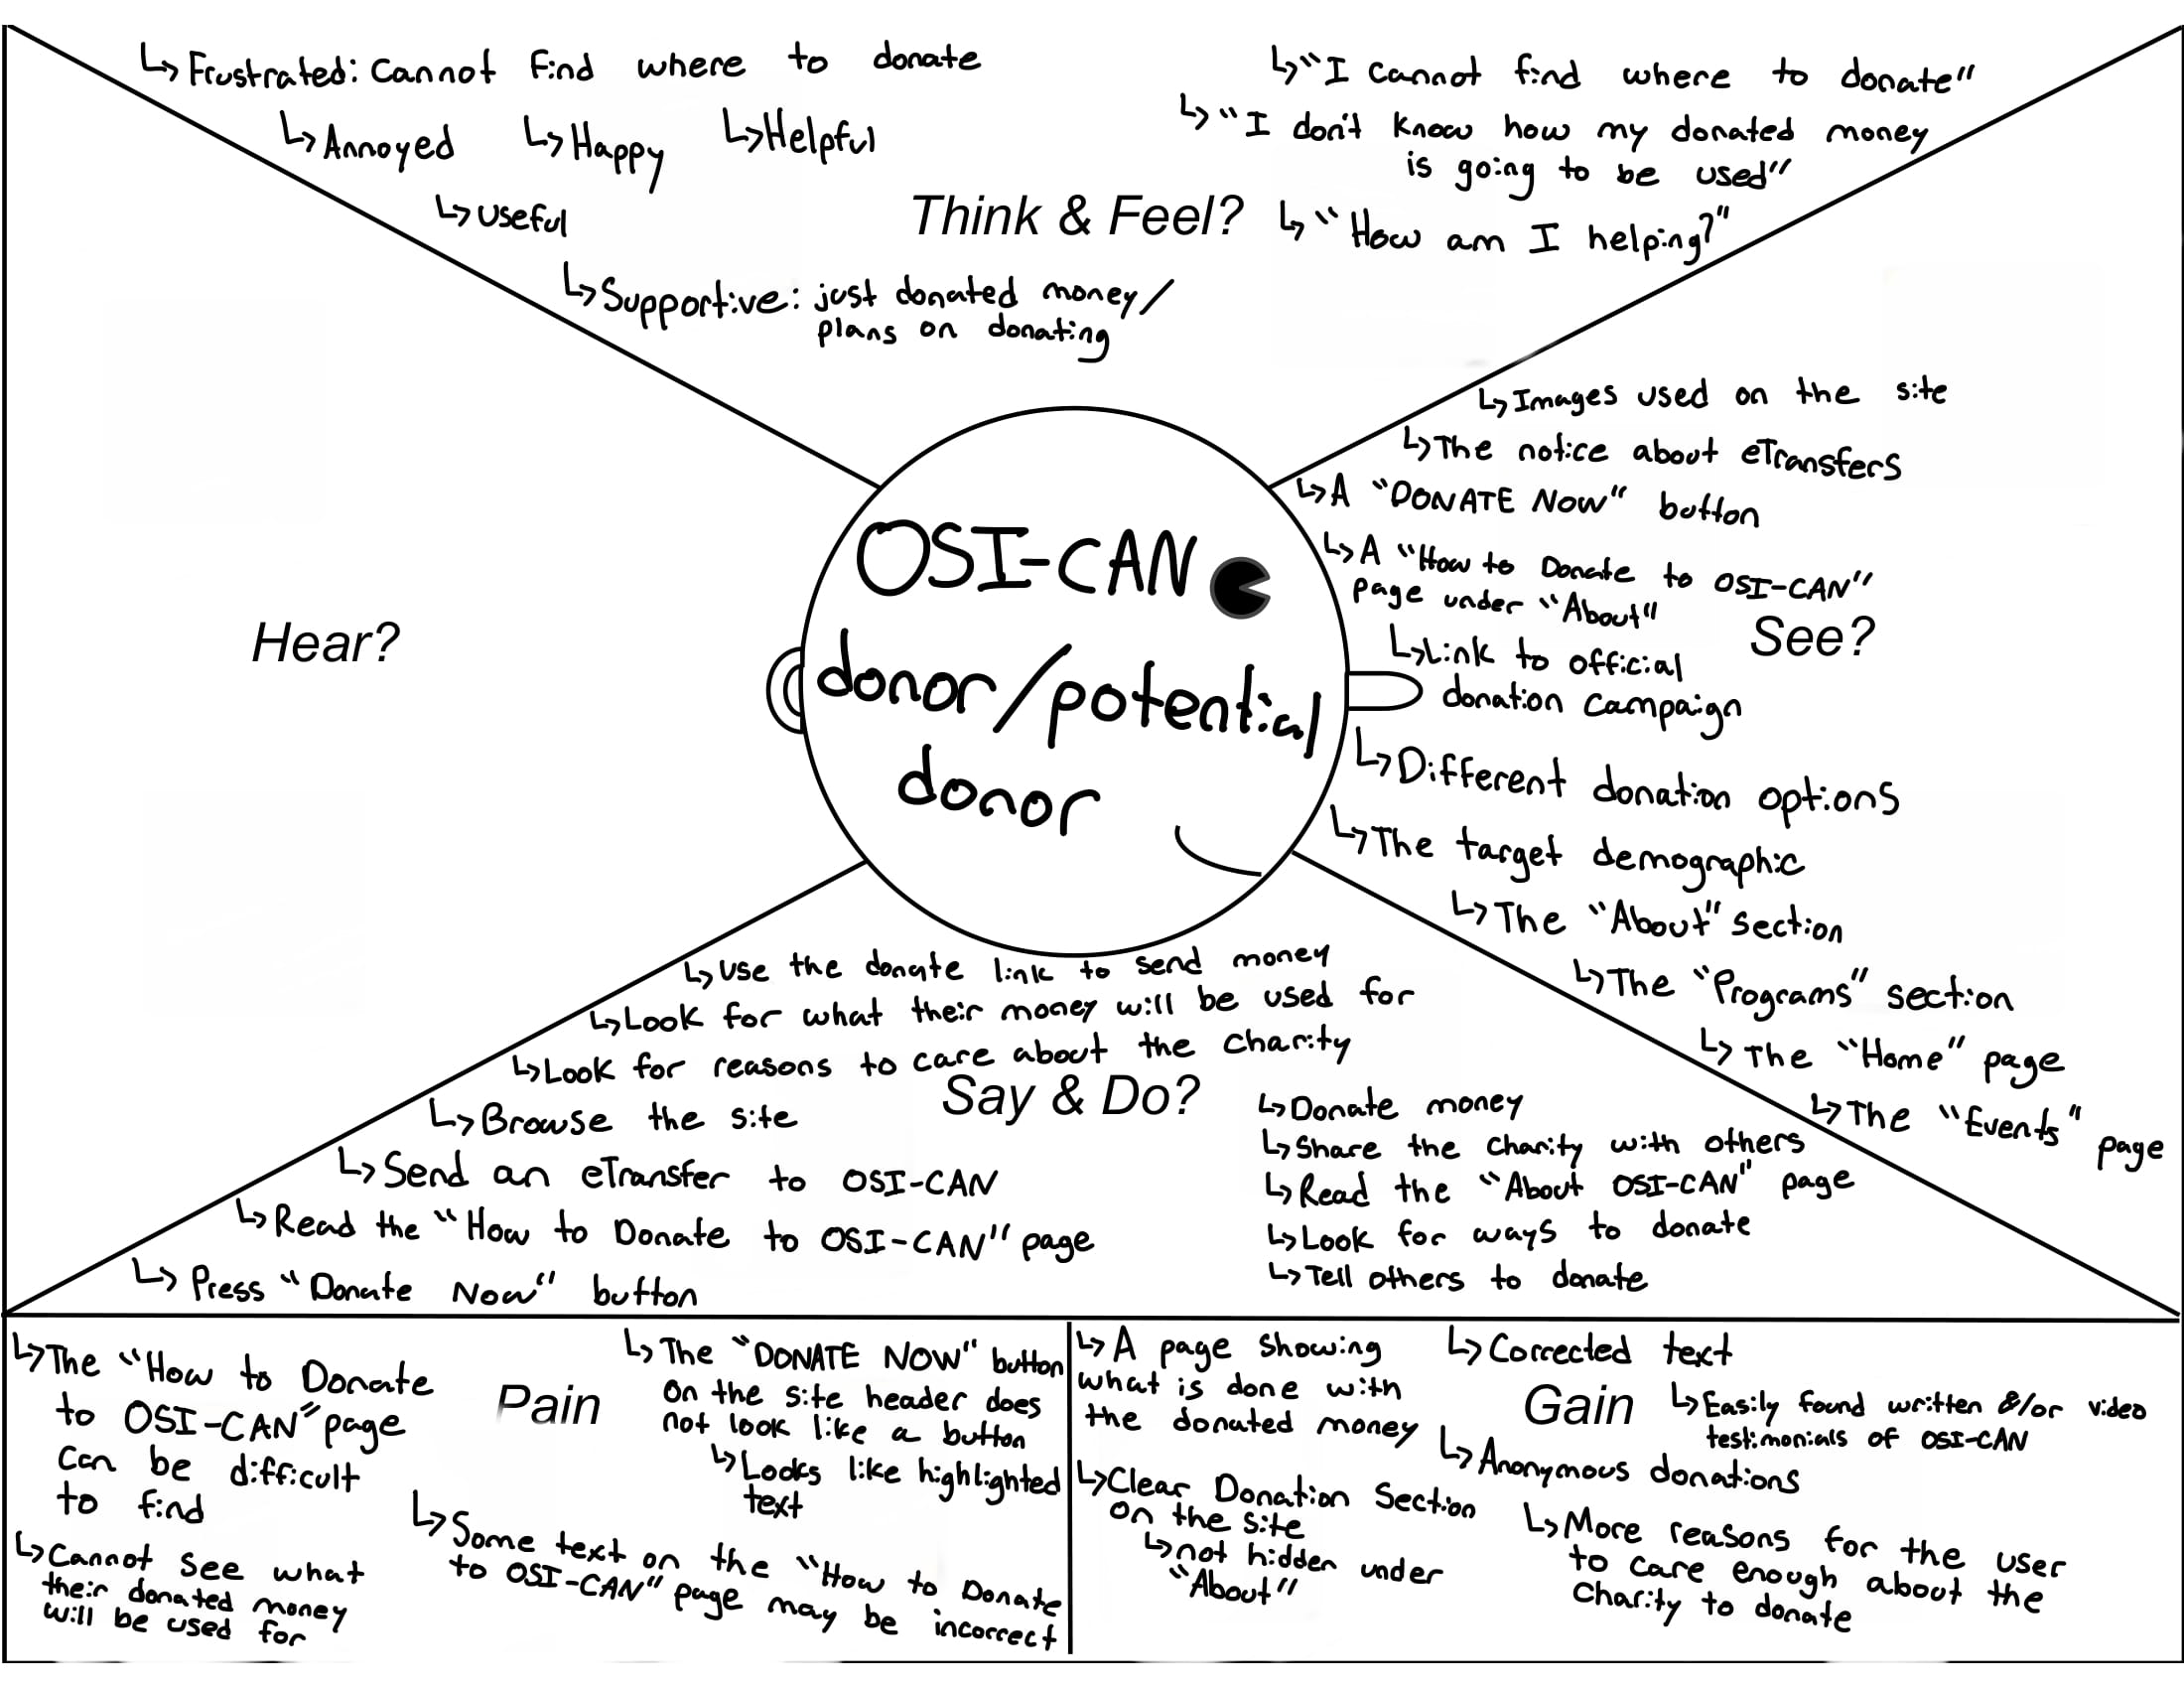 ↳ Frustrated: Cannot find where to donate
↳ Annoyed ↳ Happy ↳ Helpful
↳ Useful
↳ Supportive: just donated money/
plans on donating
Think & Feel?
↳ "I cannot find where to donate"
↳ "I don't know how my donated money
is going to be used"
↳ "How am I helping?"
Hear?
OSI-CAN
donor/potential
donor
See?
↳ Images used on the site
↳ The notice about eTransfers
↳ A "DONATE NOW" button
↳ A "How to Donate to OSI-CAN"
page under "About"
↳ Link to official
donation campaign
↳ Different donation options
↳ The target demographic
↳ The "About" section
↳ The "Programs" section
↳ The "Home" page
↳ The "Events" page
↳ Use the donate link to send money
↳ Look for what their money will be used for
↳ Look for reasons to care about the charity
Say & Do?
↳ Browse the site
↳ Send an eTransfer to OSI-CAN
↳ Read the "How to Donate to OSI-CAN" page
↳ Press "Donate Now" button
↳ Donate money
↳ Share the charity with others
↳ Read the "About OSI-CAN" page
↳ Look for ways to donate
↳ Tell others to donate
Pain
↳ The "How to Donate
to OSI-CAN" page
can be difficult
to find
↳ Cannot see what
their donated money
will be used for
↳ The "DONATE NOW" button
on the site header does
not look like a button
↳ Looks like highlighted
text
↳ Some text on the "How to Donate
to OSI-CAN" page may be incorrect
Gain
↳ A page showing
what is done with
the donated money
↳ Clear Donation Section
on the site
↳ not hidden under
"About"
↳ Corrected text
↳ Easily found written &/or video
testimonials of OSI-CAN
↳ Anonymous donations
↳ More reasons for the user
to care enough about the
charity to donate